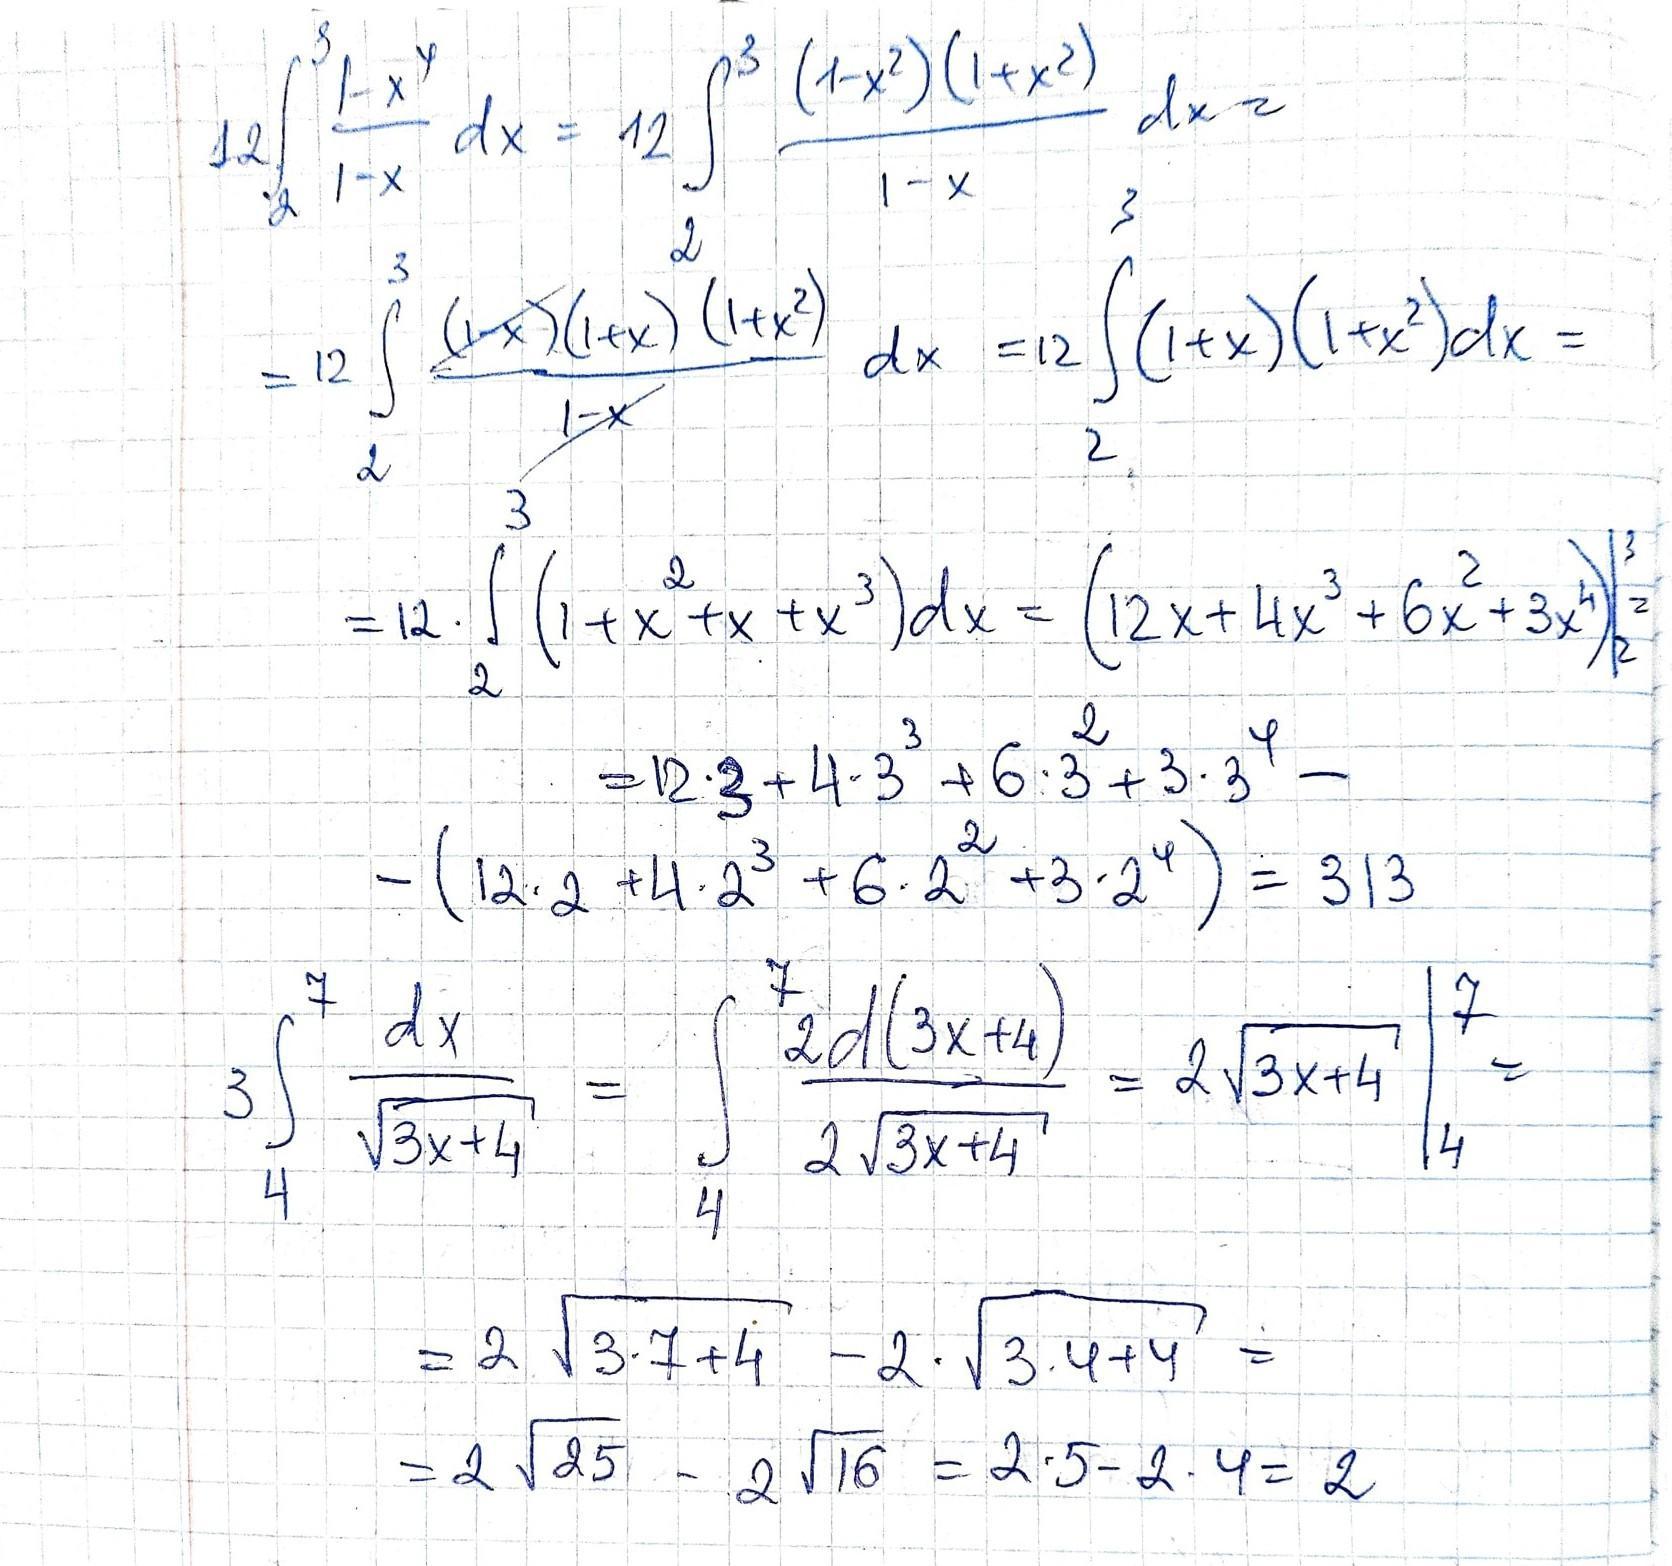 12∫₂³ (1-x⁴)/(1-x) dx = 12 ∫₂³ ((1-x²)(1+x²))/(1-x) dx =
= 12 ∫₂³ ((1-x)(1+x)(1+x²))/(1-x) dx = 12 ∫₂³ (1+x)(1+x²)dx =
= 12 · ∫₂³ (1+x²+x+x³)dx = (12x+4x³+6x²+3x⁴)|₂³ =
= 12·3+4·3³+6·3²+3·3⁴ –
– (12·2+4·2³+6·2²+3·2⁴) = 313
3∫₄⁷ dx/√(3x+4) = ∫₄⁷ 2d(3x+4)/(2√(3x+4)) = 2√(3x+4) |₄⁷ =
= 2√(3·7+4) – 2·√(3·4+4) =
= 2√25 - 2√16 = 2·5-2·4 = 2